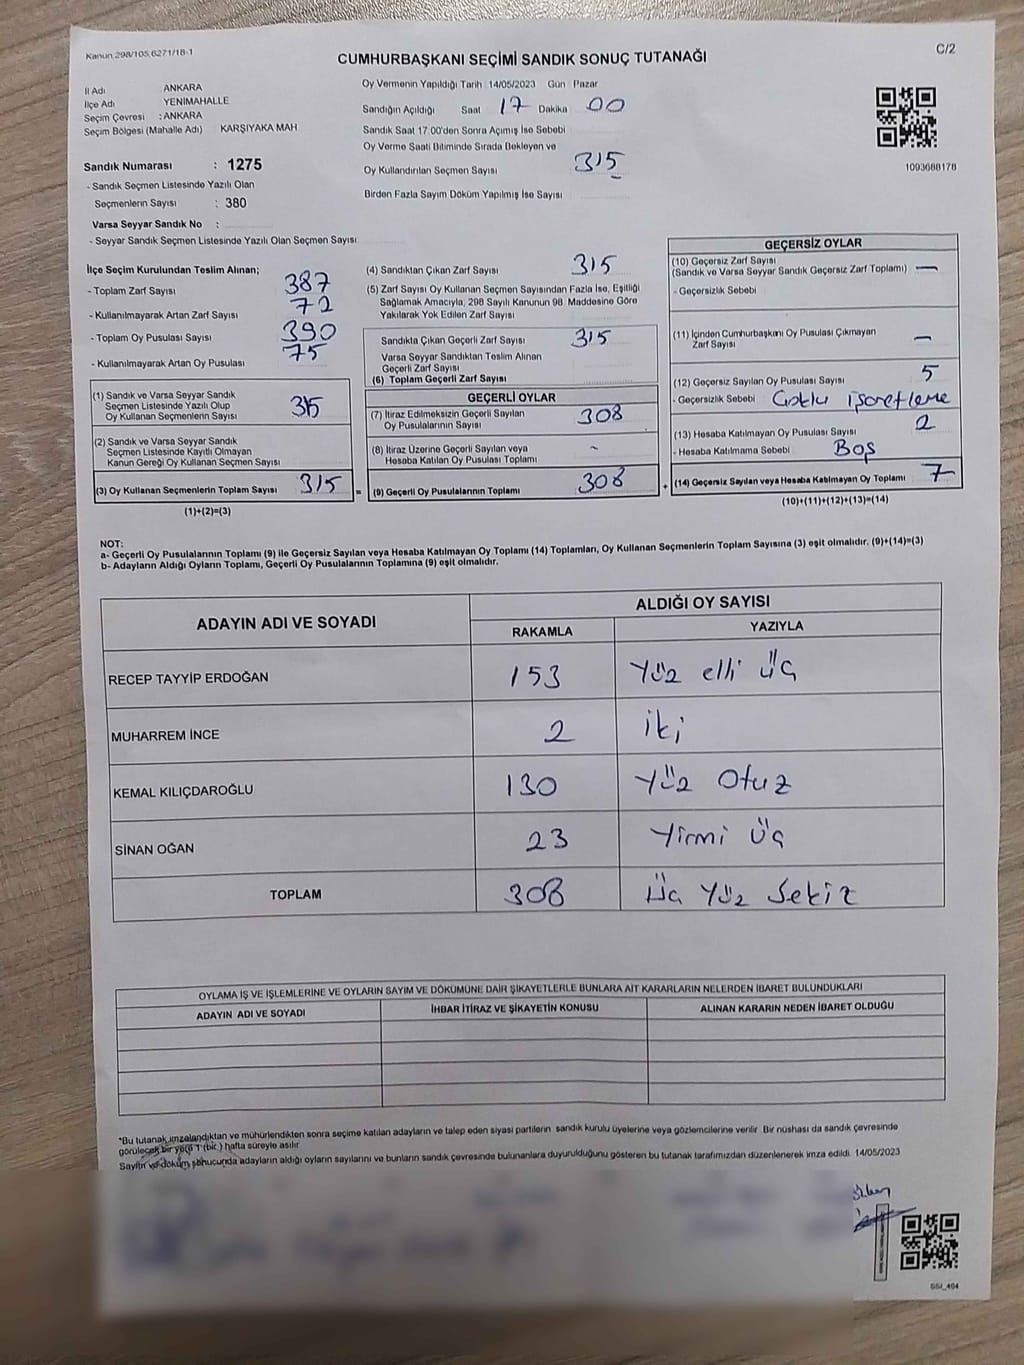 Kanun 298/105,6271/18-1
C/2
CUMHURBAŞKANI SEÇİMİ SANDIK SONUÇ TUTANAĞI
İl Adı ANKARA
İlçe Adı YENİMAHALLE
Seçim Çevresi : ANKARA
Seçim Bölgesi (Mahalle Adı) KARŞIYAKA MAH
Sandık Numarası : 1275
- Sandık Seçmen Listesinde Yazılı Olan
Seçmenlerin Sayısı : 380
Varsa Seyyar Sandık No :
- Seyyar Sandık Seçmen Listesinde Yazılı Olan Seçmen Sayısı
Oy Vermenin Yapıldığı Tarih 14/05/2023 Gün Pazar
Sandığın Açıldığı Saat 17 Dakika 00
Sandık Saat 17:00'den Sonra Açımış İse Sebebi
Oy Verme Saati Bitiminde Sırada Bekleyen ve
Oy Kullandırılan Seçmen Sayısı 315
Birden Fazla Sayım Döküm Yapılmış İse Sayısı
1093688178
İlçe Seçim Kurulundan Teslim Alınan;
- Toplam Zarf Sayısı 387
- Kullanılmayarak Artan Zarf Sayısı 72
- Toplam Oy Pusulası Sayısı 390
- Kullanılmayarak Artan Oy Pusulası 75
(1) Sandık ve Varsa Seyyar Sandık
Seçmen Listesinde Yazılı Olup
Oy Kullanan Seçmenlerin Sayısı 315
(2) Sandık ve Varsa Seyyar Sandık
Seçmen Listesinde Kayıtlı Olmayan
Kanun Gereği Oy Kullanan Seçmen Sayısı
(3) Oy Kullanan Seçmenlerin Toplam Sayısı 315 =
(1)+(2)=(3)
(4) Sandıktan Çıkan Zarf Sayısı 315
(5) Zarf Sayısı Oy Kullanan Seçmen Sayısından Fazla İse, Eşitliği
Sağlamak Amacıyla, 298 Sayılı Kanunun 98. Maddesine Göre
Yakılarak Yok Edilen Zarf Sayısı
Sandıkta Çıkan Geçerli Zarf Sayısı 315
Varsa Seyyar Sandıktan Teslim Alınan
Geçerli Zarf Sayısı
(6) Toplam Geçerli Zarf Sayısı
GEÇERLİ OYLAR
(7) İtiraz Edilmeksizin Geçerli Sayılan
Oy Pusulalarının Sayısı 308
(8) İtiraz Üzerine Geçerli Sayılan veya
Hesaba Katılan Oy Pusulası Toplamı -
(9) Geçerli Oy Pusulalarının Toplamı 308 +
GEÇERSİZ OYLAR
(10) Geçersiz Zarf Sayısı
(Sandık ve Varsa Seyyar Sandık Geçersiz Zarf Toplamı) —
- Geçersizlik Sebebi
(11) İçinden Cumhurbaşkanı Oy Pusulası Çıkmayan
Zarf Sayısı —
(12) Geçersiz Sayılan Oy Pusulası Sayısı 5
- Geçersizlik Sebebi Çoklu işaretleme
(13) Hesaba Katılmayan Oy Pusulası Sayısı 2
- Hesaba Katılmama Sebebi Boş
(14) Geçersiz Sayılan veya Hesaba Katılmayan Oy Toplamı 7
(10)+(11)+(12)+(13)=(14)
NOT:
a- Geçerli Oy Pusulalarının Toplamı (9) ile Geçersiz Sayılan veya Hesaba Katılmayan Oy Toplamı (14) Toplamları, Oy Kullanan Seçmenlerin Toplam Sayısına (3) eşit olmalıdır. (9)+(14)=(3)
b- Adayların Aldığı Oyların Toplamı, Geçerli Oy Pusulalarının Toplamına (9) eşit olmalıdır.
ADAYIN ADI VE SOYADI
ALDIĞI OY SAYISI
RAKAMLA YAZIYLA
RECEP TAYYİP ERDOĞAN 153 Yüz elli üç
MUHARREM İNCE 2 iki
KEMAL KILIÇDAROĞLU 130 Yüz Otuz
SİNAN OĞAN 23 Yirmi Üç
TOPLAM 308 Üç Yüz Sekiz
OYLAMA İŞ VE İŞLEMLERİNE VE OYLARIN SAYIM VE DÖKÜMÜNE DAİR ŞİKAYETLERLE BUNLARA AİT KARARLARIN NELERDEN İBARET BULUNDUKLARI
ADAYIN ADI VE SOYADI İHBAR İTİRAZ VE ŞİKAYETİN KONUSU ALINAN KARARIN NEDEN İBARET OLDUĞU
*Bu tutanak imzalandıktan ve mühürlendikten sonra seçime katılan adayların ve talep eden siyasi partilerin sandık kurulu üyelerine veya gözlemcilerine verilir. Bir nüshası da sandık çevresinde
görülecek bir yere 1 (bir) hafta süreyle asılır.
Sayım ve döküm sonucunda adayların aldığı oyların sayılarını ve bunların sandık çevresinde bulunanlara duyurulduğunu gösteren bu tutanak tarafımızdan düzenlenerek imza edildi. 14/05/2023